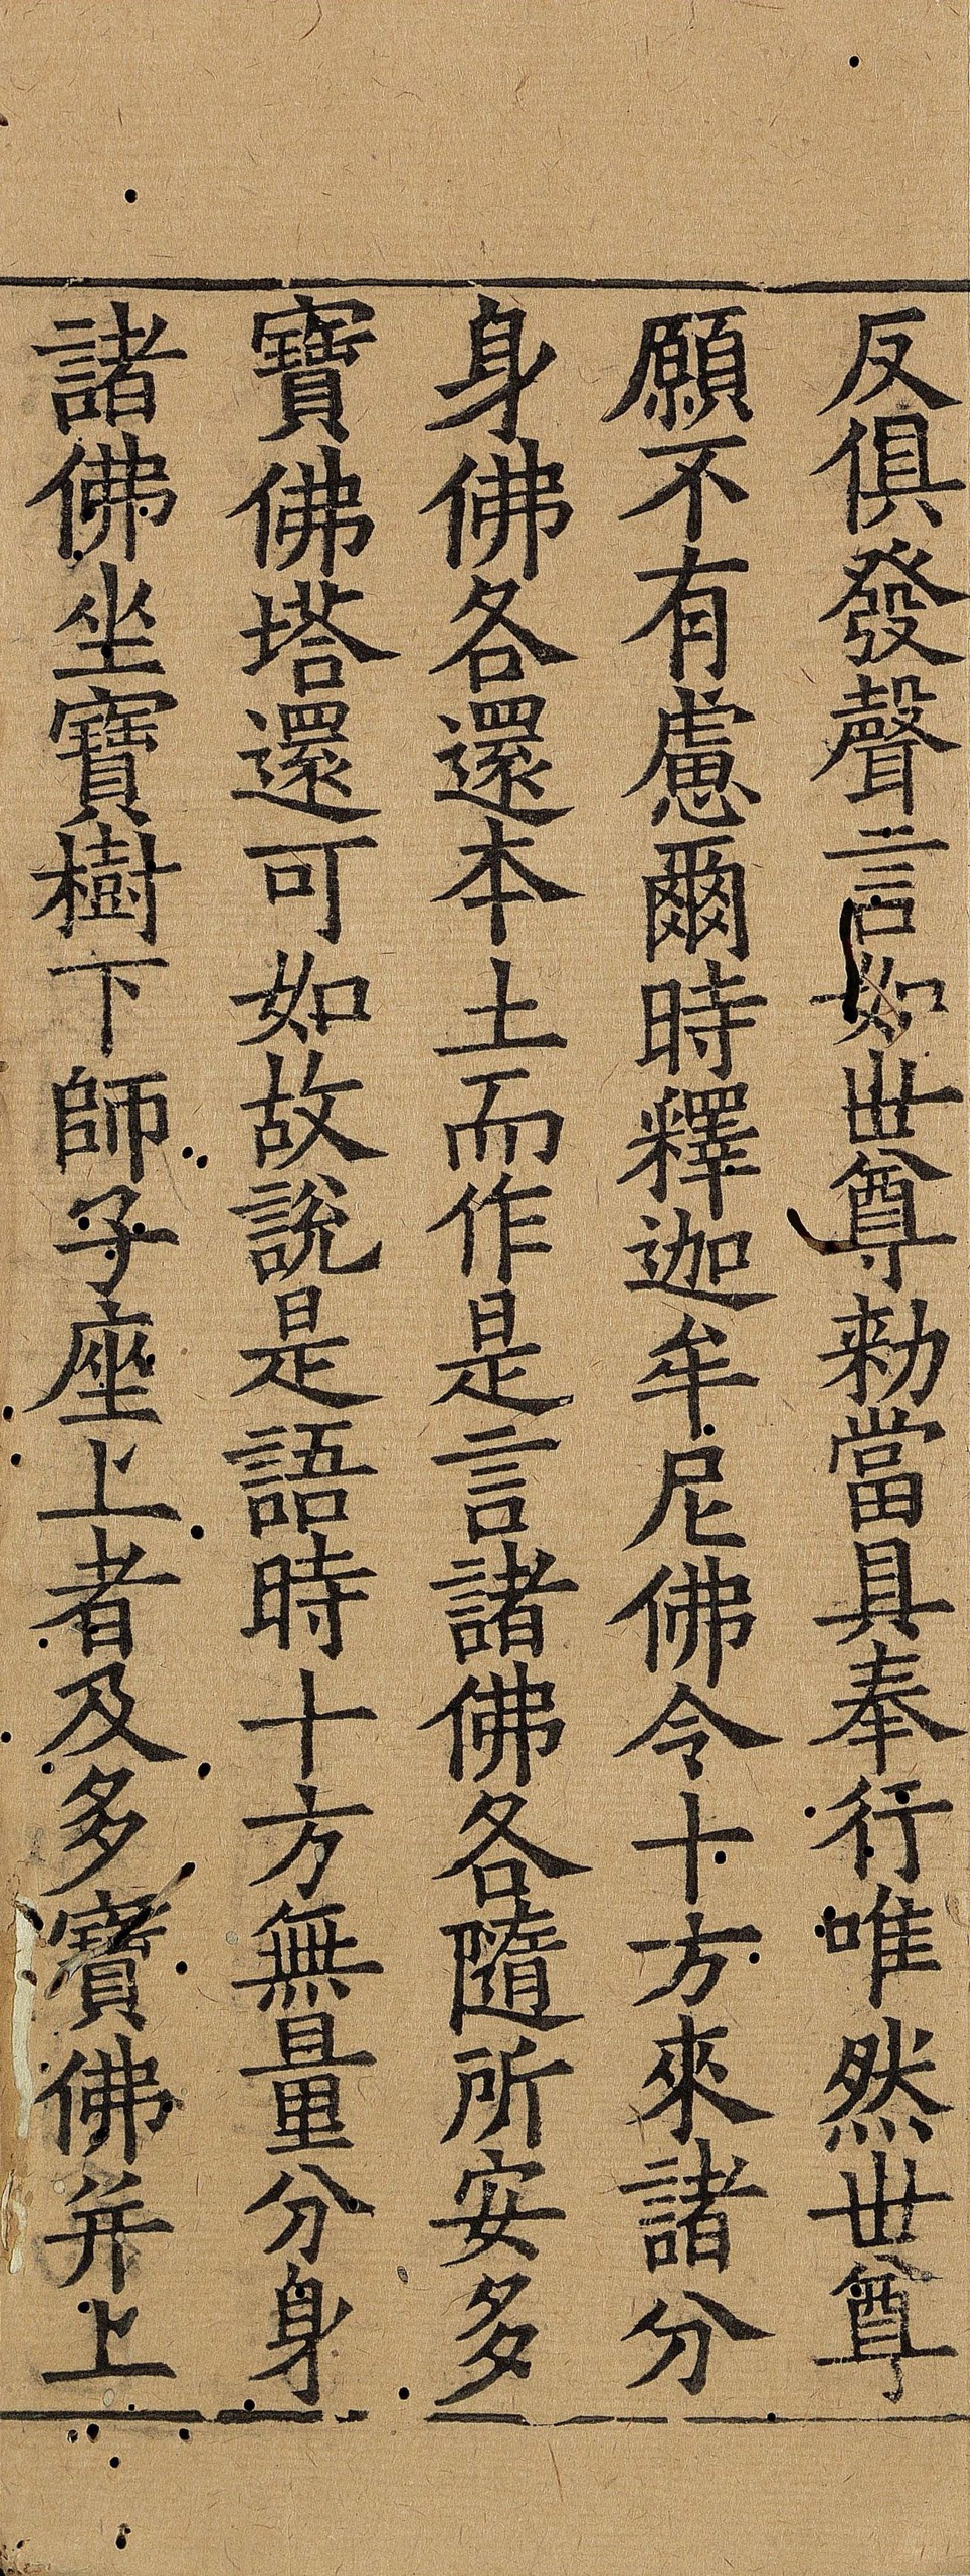 反俱發聲言如世尊勑當具奉行唯然世尊
願不有慮爾時釋迦牟尼佛令十方來諸分
身佛各還本土而作是言諸佛各隨所安多
寶佛塔還可如故說是語時十方無量分身
諸佛坐寶樹下師子座上者及多寶佛并上